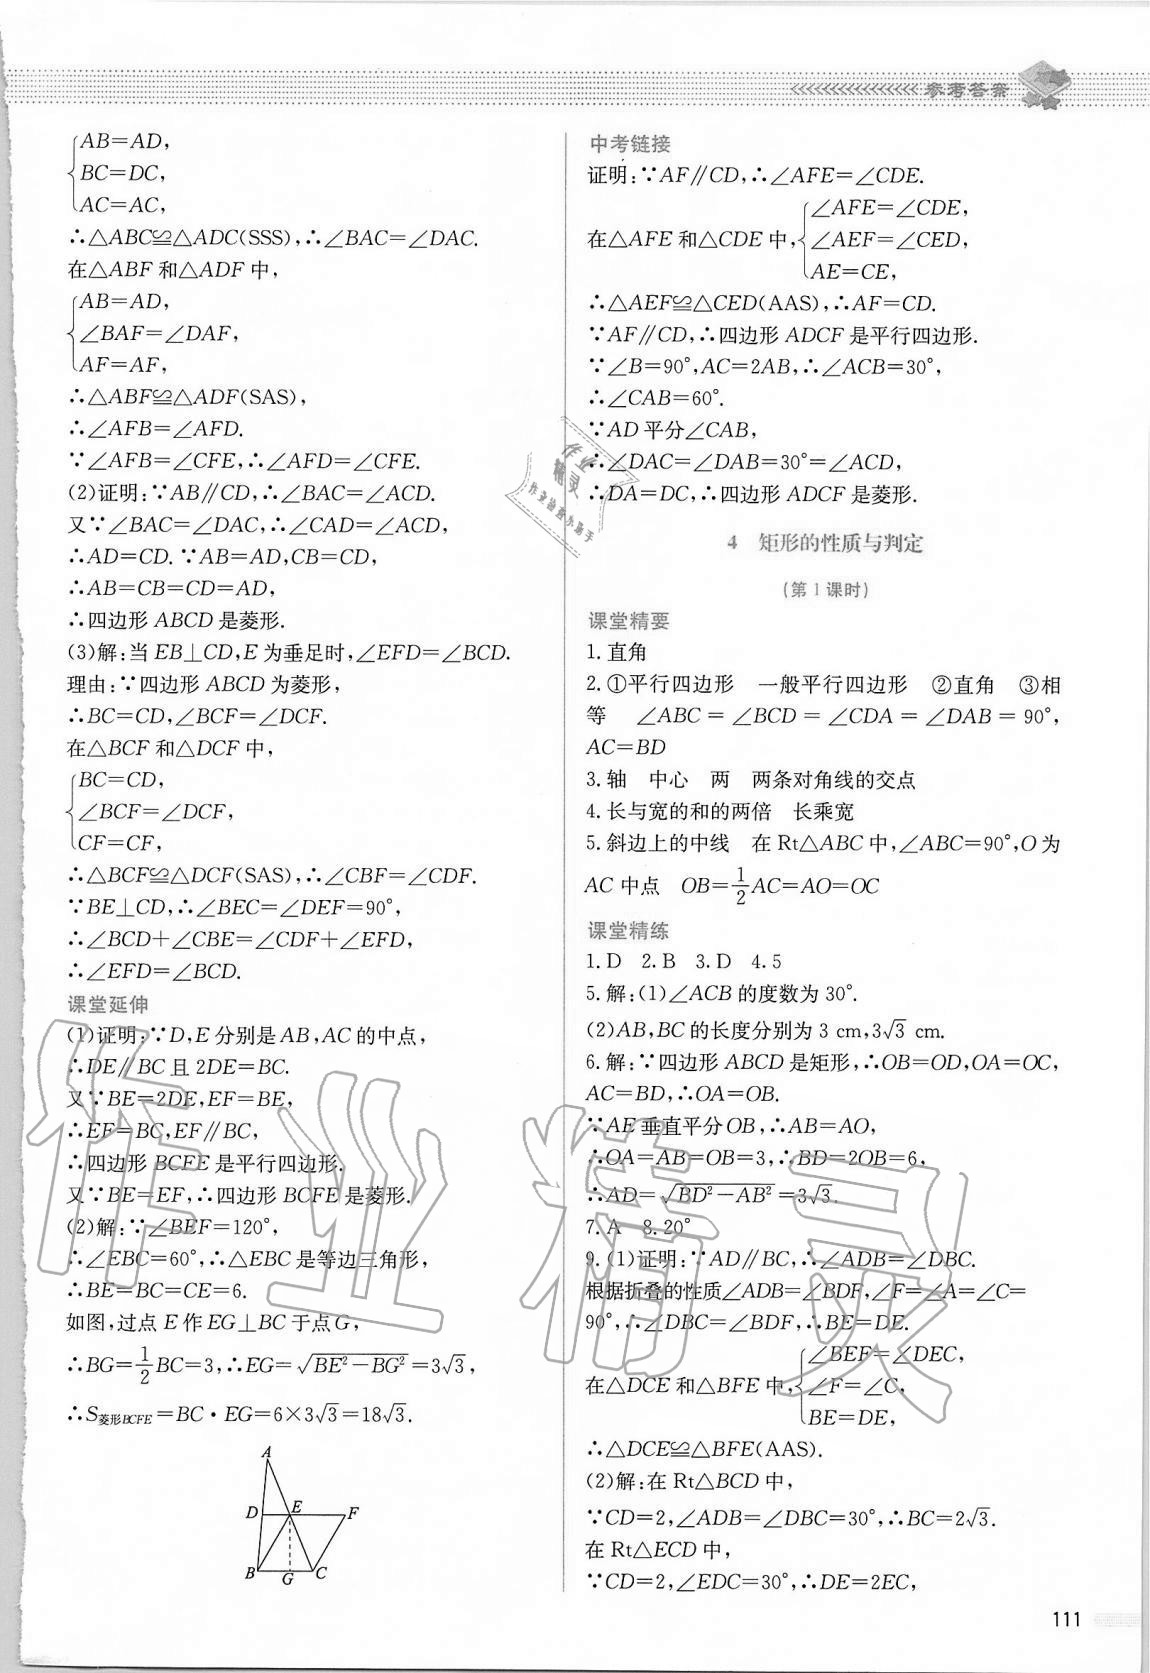 参考答案
AB=AD,
BC=DC,
AC=AC,
∴△ABC≌△ADC(SSS),∴∠BAC=∠DAC.
在△ABF 和△ADF 中,
AB=AD,
∠BAF=∠DAF,
AF=AF,
∴△ABF≌△ADF(SAS),
∴∠AFB=∠AFD.
∵∠AFB=∠CFE,∴∠AFD=∠CFE.
(2)证明:∵AB∥CD,∴∠BAC=∠ACD.
又∵∠BAC=∠DAC,∴∠CAD=∠ACD,
∴AD=CD.∵AB=AD,CB=CD,
∴AB=CB=CD=AD,
∴四边形 ABCD 是菱形.
(3)解:当 EB⊥CD,E 为垂足时,∠EFD=∠BCD.
理由:∵四边形 ABCD 为菱形,
∴BC=CD,∠BCF=∠DCF.
在△BCF 和△DCF 中,
BC=CD,
∠BCF=∠DCF,
CF=CF,
∴△BCF≌△DCF(SAS),∴∠CBF=∠CDF.
∵BE⊥CD,∴∠BEC=∠DEF=90°,
∴∠BCD+∠CBE=∠CDF+∠EFD,
∴∠EFD=∠BCD.
课堂延伸
(1)证明:∵D,E 分别是 AB,AC 的中点,
∴DE∥BC 且 2DE=BC.
又∵BE=2DE,EF=BE,
∴EF=BC,EF∥BC,
∴四边形 BCFE 是平行四边形.
又∵BE=EF,∴四边形 BCFE 是菱形.
(2)解:∵∠BEF=120°,
∴∠EBC=60°,∴△EBC 是等边三角形,
∴BE=BC=CE=6.
如图,过点 E 作 EG⊥BC 于点 G,
∴BG=1/2BC=3,∴EG=√(BE²−BG²)=3√3,
∴S菱形BCFE=BC·EG=6×3√3=18√3.
A
D E F
B G C
中考链接
证明:∵AF∥CD,∴∠AFE=∠CDE.
∠AFE=∠CDE,
在△AFE 和△CDE 中, ∠AEF=∠CED,
AE=CE,
∴△AEF≌△CED(AAS),∴AF=CD.
∵AF∥CD,∴四边形 ADCF 是平行四边形.
∵∠B=90°,AC=2AB,∴∠ACB=30°,
∴∠CAB=60°.
∵AD 平分∠CAB,
∴∠DAC=∠DAB=30°=∠ACD,
∴DA=DC,∴四边形 ADCF 是菱形.
4 矩形的性质与判定
(第 1 课时)
课堂精要
1.直角
2.①平行四边形 一般平行四边形 ②直角 ③相
等 ∠ABC=∠BCD=∠CDA=∠DAB=90°,
AC=BD
3.轴 中心 两 两条对角线的交点
4.长与宽的和的两倍 长乘宽
5.斜边上的中线 在 Rt△ABC 中,∠ABC=90°,O 为
AC 中点 OB=1/2AC=AO=OC
课堂精练
1.D 2.B 3.D 4.5
5.解:(1)∠ACB 的度数为 30°.
(2)AB,BC 的长度分别为 3 cm,3√3 cm.
6.解:∵四边形 ABCD 是矩形,∴OB=OD,OA=OC,
AC=BD,∴OA=OB.
∵AE 垂直平分 OB,∴AB=AO,
∴OA=AB=OB=3,∴BD=2OB=6,
∴AD=√(BD²−AB²)=3√3.
7.A 8.20°
9.(1)证明:∵AD∥BC,∴∠ADB=∠DBC.
根据折叠的性质∠ADB=∠BDF,∠F=∠A=∠C=
90°,∴∠DBC=∠BDF,∴BE=DE.
∠BEF=∠DEC,
在△DCE 和△BFE 中, ∠F=∠C,
BE=DE,
∴△DCE≌△BFE(AAS).
(2)解:在 Rt△BCD 中,
∵CD=2,∠ADB=∠DBC=30°,∴BC=2√3.
在 Rt△ECD 中,
∵CD=2,∠EDC=30°,∴DE=2EC,
111
作业精灵